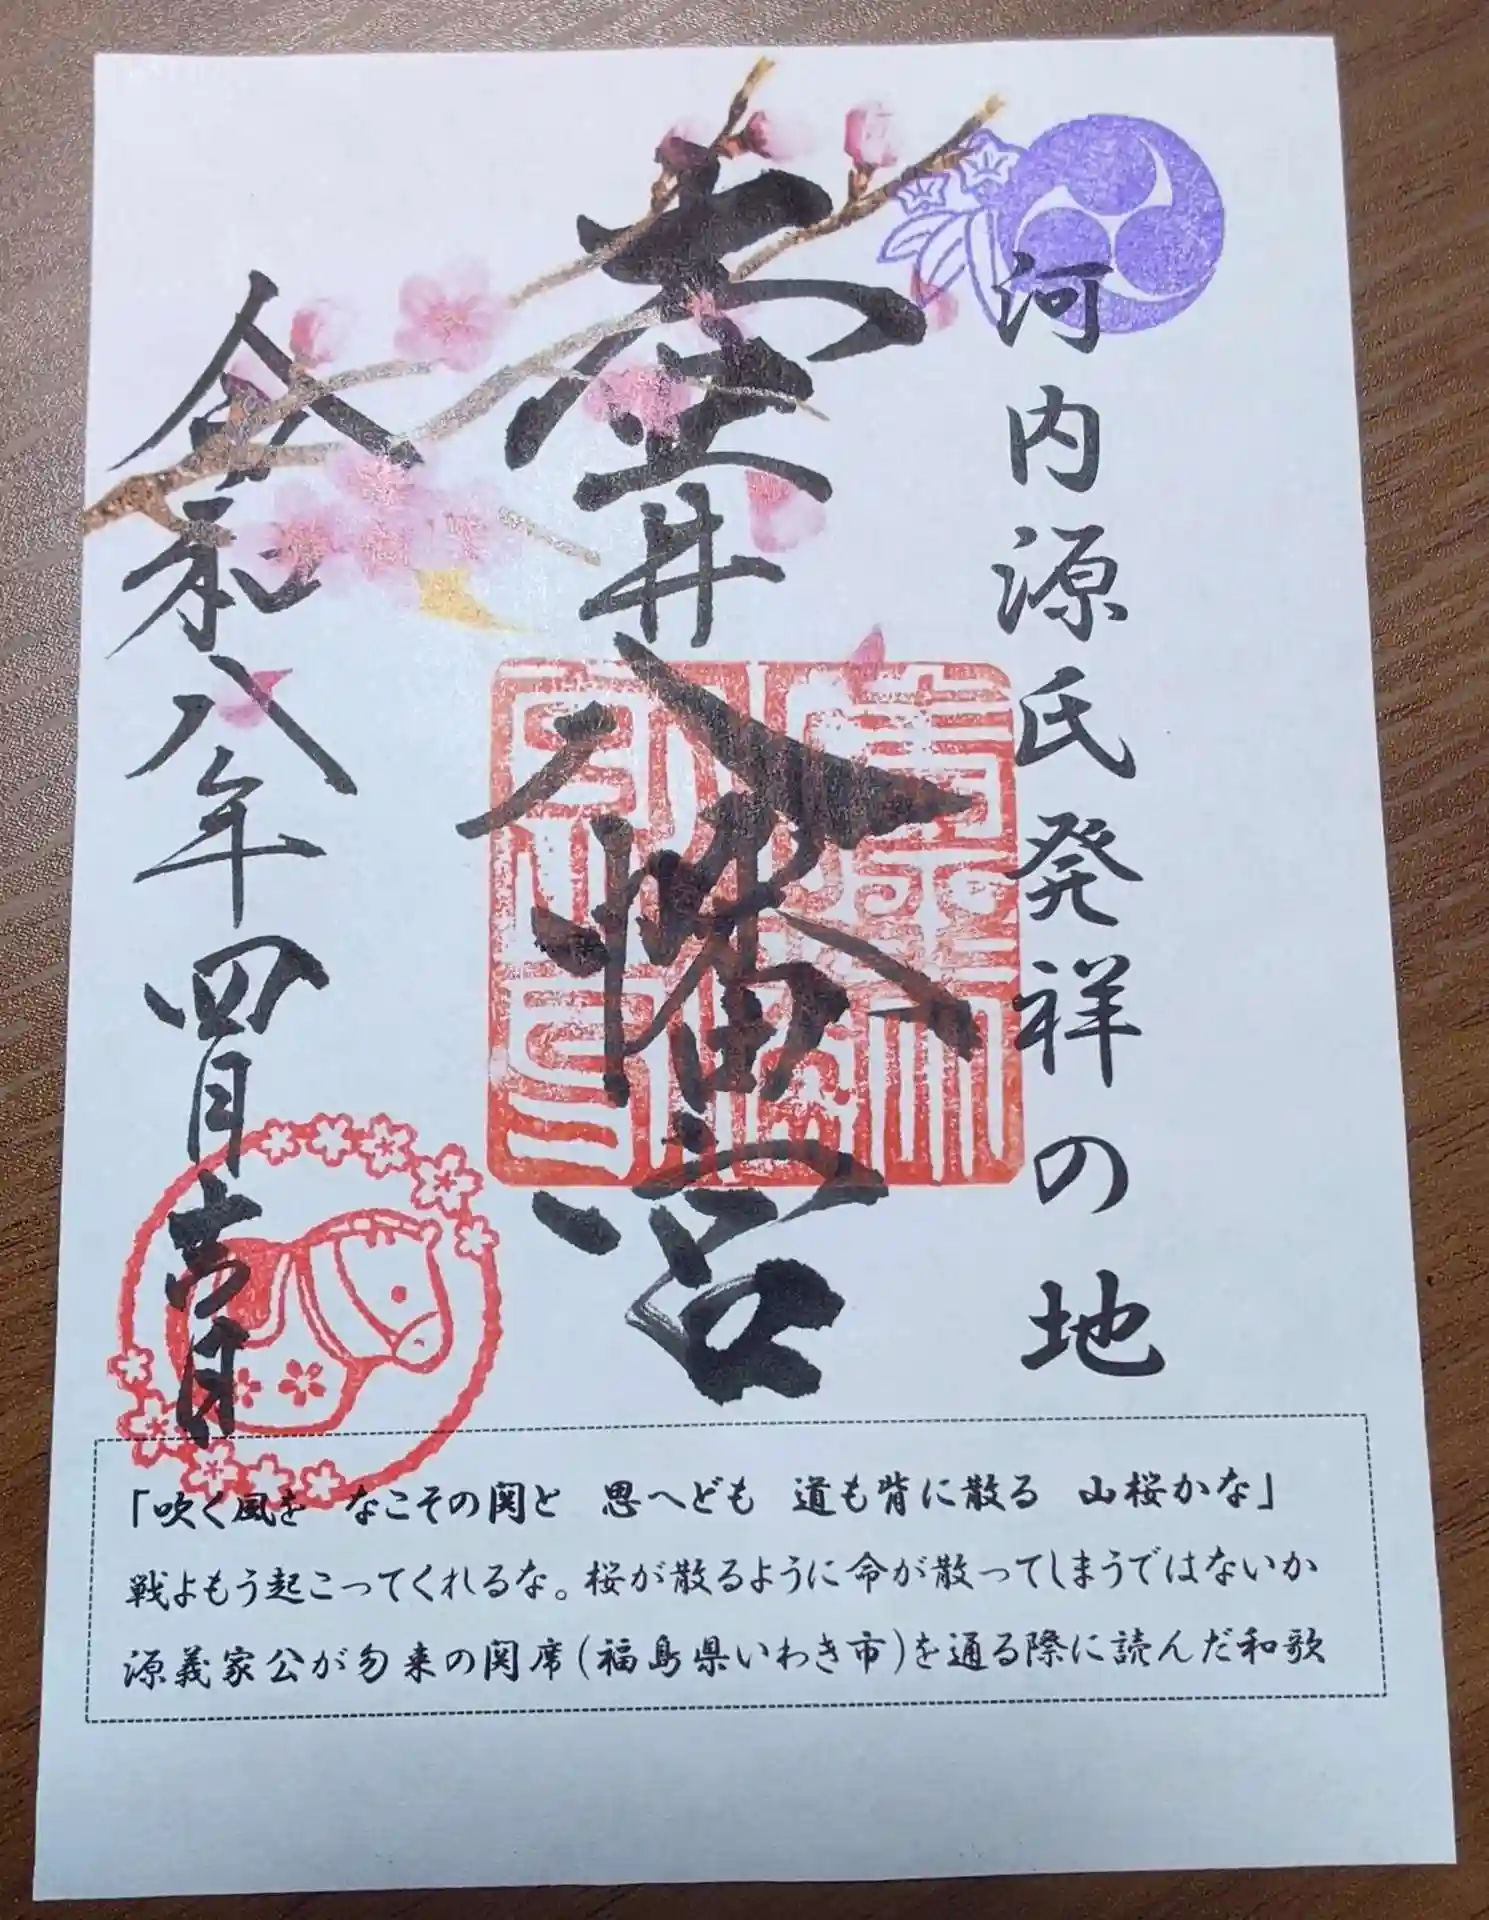 河内源氏発祥の地
壺井八幡宮
令和八年四月壱日
「吹く風を なこその関と 思へども 道も背に散る 山桜かな」
戦よもう起こってくれるな。桜が散るように命が散ってしまうではないか
源義家公が勿来の関席(福島県いわき市)を通る際に読んだ和歌